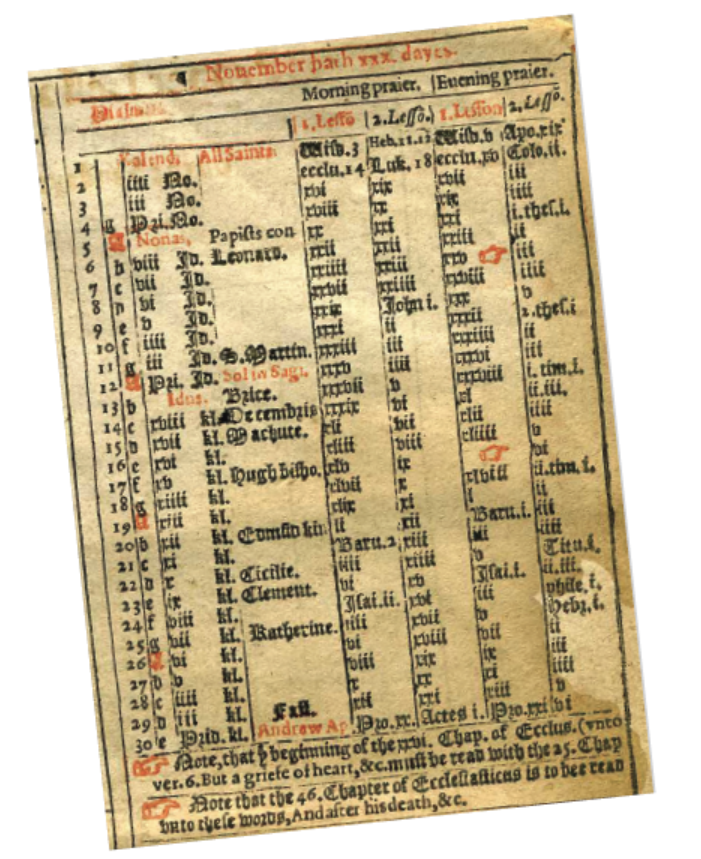 Nouember hath xxx. dayes.
Morning praier. Euening praier.
Psalmes.
1.Lessō 2.Lessō. 1.Lesson 2.Lessō.
1 Kalend. All Saints. Wisd.3 Heb.11.12 Wisd.v Apo.xix
2 iiii No. ecclu.14 Luk.18 ecclu.xv Colo.ii.
3 iii No. xvi xix xvii iii
4 g Pri.No. xviii xx xix iiii
5 Nonas. Papists con xx xxi xxi i.thes.i.
6 b viii Id. Leonard. xxii xxii xxiii ii
7 c vii Id. xxiiii xxiii xxv iii
8 d vi Id. xxvii xxiiii iiii
9 e v Id. xxix John i. xxx v
10 f iiii Id. xxxi ii xxxii 2.thes.i
11 g iii Id. S.Martin. xxxiii iii xxxiiii ii
12 Pri. Id. Sol in Sagi. iiii xxxvi iii
13 b Idus. Brice. xxxvii v xxxviii i.tim.i.
14 c xviii kl. Decembris xxxix vi xl ii.iii.
15 d xvii kl. Machute. xli vii xlii iiii
16 e xvi kl. xliii viii xliiii v
17 f xv kl. Hugh bisho. xlv ix vi
18 g xiiii kl. xlvii x xlviii ii.tim.i.
19 xiii kl. xlix xi l ii
20 b xii kl. Edmūd kin li xii Baru.i. iii
21 c xi kl. Baru.2 xiii iiii
22 d x kl. Cicilie. iiii v Titu.i.
23 e ix kl. Clement. vi xv Isai.i. ii.iii.
24 f viii kl. Isai.ii. xvi iii phile.i.
25 g kl. Katherine. iiii xvii v Hebr.i.
26 vi kl. vi xviii vii ii
27 b v kl. viii xix ix iii
28 c iiii kl. x xx xi iiii
29 d iii kl. Fast. xii xxi xiii v
30 e Prid. kl. Andrew Ap Pro.xx. Actes i. Pro.xxi vi
Note, that yᵉ beginning of the xxvi. Chap. of Ecclus. (vnto
ver.6. But a griefe of heart, &c. must be read with the 25. Chap
Note that the 46. Chapter of Ecclesiasticus is to bee read
vnto these words, And after his death, &c.